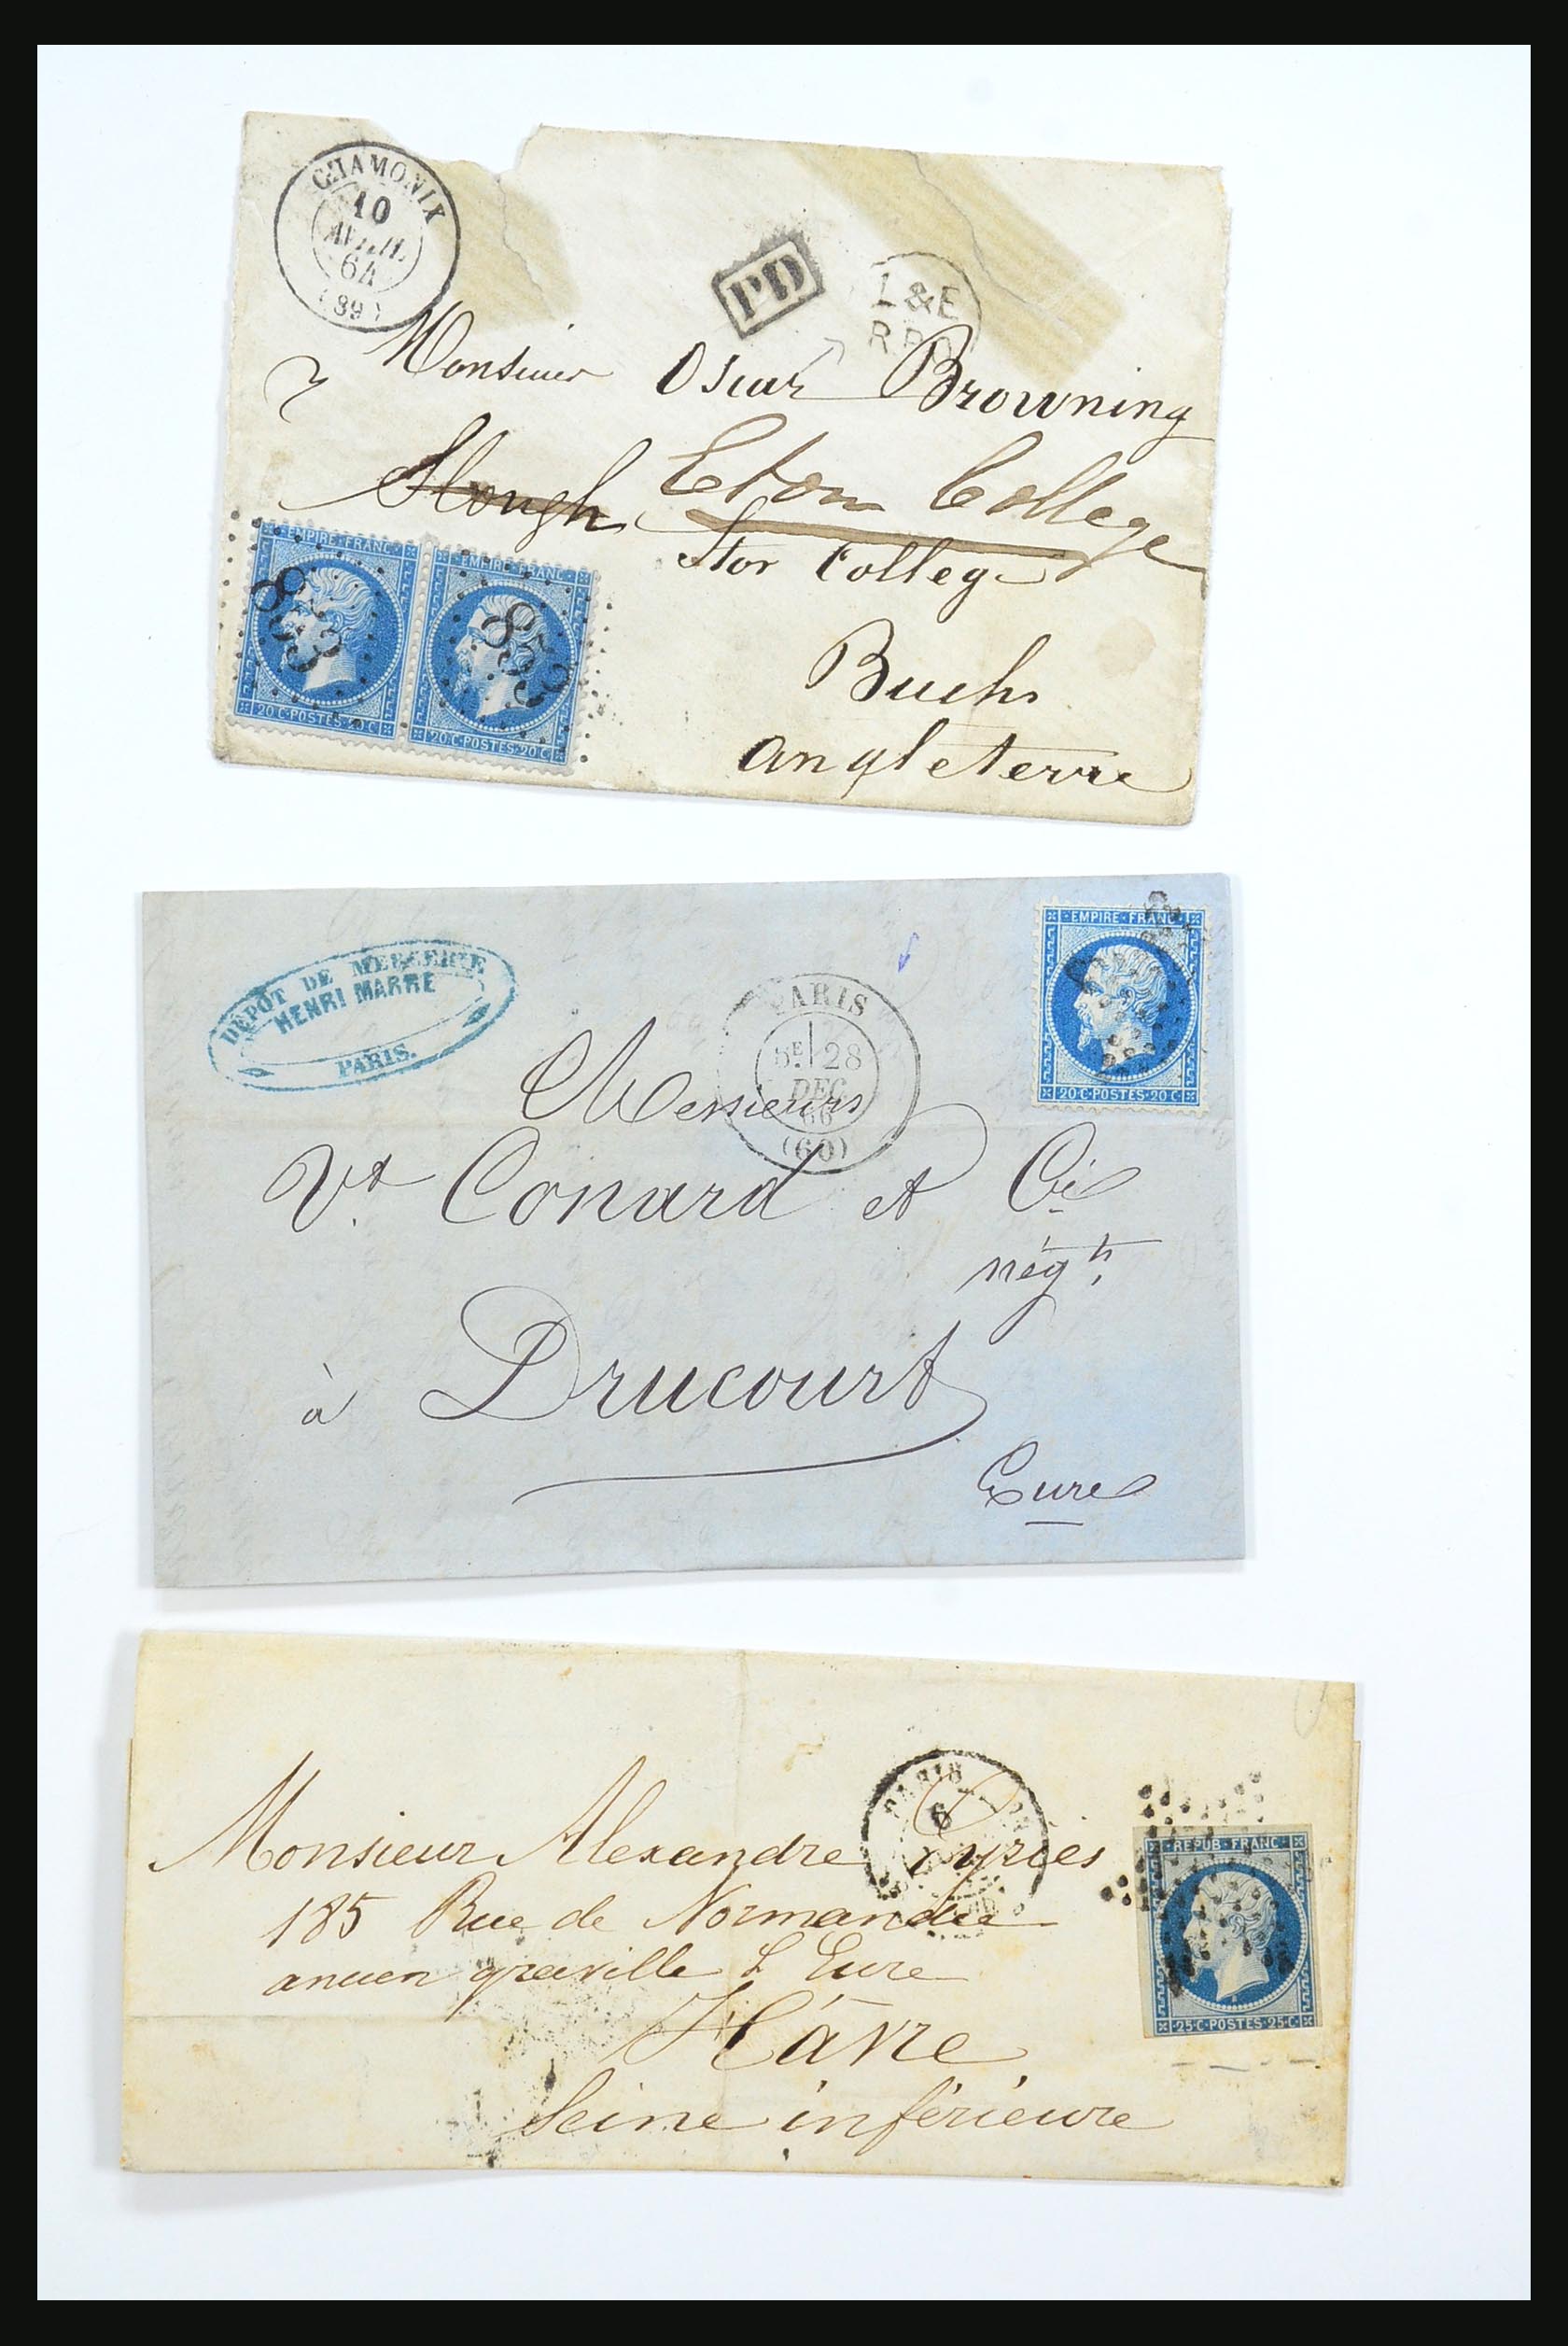 CHAMONIX
10
AVRIL
64
(89)
PD
L&E
RPO
Monsieur Oscar Browning
Slough Eton College
Stor College
Buchs
Angleterre
EMPIRE FRANC
853
20 C POSTES 20 C
EMPIRE FRANC
853
20 C POSTES 20 C
DÉPOT DE MERCERIE
HENRI MARRE
PARIS.
EMPIRE FRANC
20 C POSTES 20 C
PARIS
28
DEC
66
(60)
Messieurs
Vt Conard et Cie
négts
à Drucourt
Eure
PARIS
6
REPUB FRANC
25 C POSTES 25 C
Monsieur Alexandre Eyriès
185 Rue de Normandie
ancien graville L'Eure
Hâvre
Seine inférieure